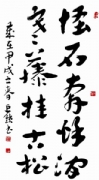 怪石奔秋澗
寒藤挂古松
歲在甲戌之春